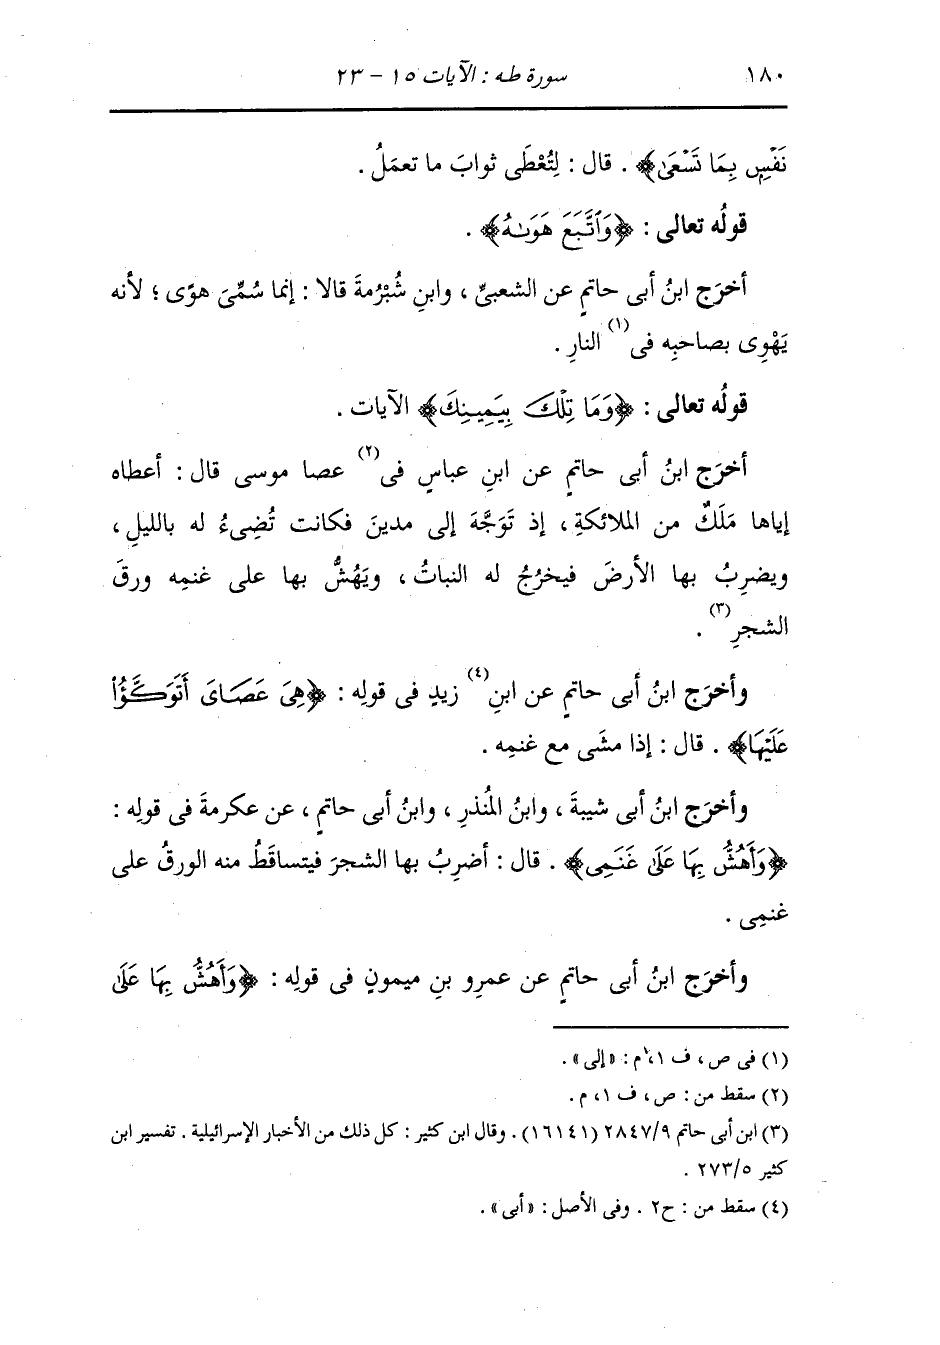 ١٨٠ سورة طه : الآيات ١٥ - ٢٣
نَفْسٍ بِمَا تَسْعَىٰ﴾ . قال : لِتُعْطَى ثوابَ ما تعمَلُ .
قولُه تعالى : ﴿وَٱتَّبَعَ هَوَىٰهُ﴾ .
أخرَج ابنُ أبى حاتمٍ عن الشعبىِّ ، وابنِ شُبْرُمةَ قالا : إنما سُمِّىَ هوًى ؛ لأنه
يَهْوِى بصاحبِه فى(١) النارِ .
قولُه تعالى : ﴿وَمَا تِلْكَ بِيَمِينِكَ﴾ الآيات .
أخرَج ابنُ أبى حاتمٍ عن ابنِ عباسٍ فى(٢) عصا موسى قال : أعطاه
إياها مَلَكٌ من الملائكةِ ، إذ تَوَجَّهَ إلى مدينَ فكانت تُضِىءُ له بالليلِ ،
ويضرِبُ بها الأرضَ فيخرُجُ له النباتُ ، ويَهُشُّ بها على غنمِه ورقَ
الشجرِ(٣) .
وأخرَج ابنُ أبى حاتمٍ عن ابنِ(٤) زيدٍ فى قولِه : ﴿هِىَ عَصَاىَ أَتَوَكَّؤُا
عَلَيْهَا﴾ . قال : إذا مشَى مع غنمِه .
وأخرَج ابنُ أبى شيبةَ ، وابنُ المُنذرِ ، وابنُ أبى حاتمٍ ، عن عكرمةَ فى قولِه :
﴿وَأَهُشُّ بِهَا عَلَىٰ غَنَمِى﴾ . قال : أضرِبُ بها الشجرَ فيتساقَطُ منه الورقُ على
غنمِى .
وأخرَج ابنُ أبى حاتمٍ عن عمرِو بنِ ميمونٍ فى قولِه : ﴿وَأَهُشُّ بِهَا عَلَىٰ
(١) فى ص ، ف ١ ، م : «إلى» .
(٢) سقط من : ص ، ف ١ ، م .
(٣) ابن أبى حاتم ٢٨٤٧/٩ (١٦١٤١) . وقال ابن كثير : كل ذلك من الأخبار الإسرائيلية . تفسير ابن
كثير ٢٧٣/٥ .
(٤) سقط من : ح٢ . وفى الأصل : «أبى» .